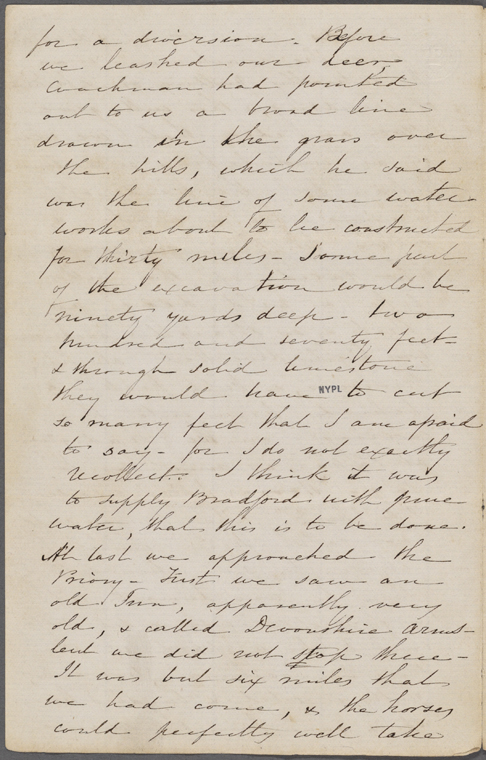 for a diversion. Before
we leashed our deer,
Coachman had pointed
out to us a broad line
drawn in the grass over
the hills, which he said
was the line of some water-
works about to be constructed
for thirty miles - Some part
of the excavation would be
ninety yards deep - two
hundred and seventy feet -
& through solid limestone
they would have to cut
NYPL
so many feet that I am afraid
to say - for I do not exactly
recollect. I think it was
to supply Bradford with pure
water, that this is to be done.
At last we approached the
Priory - First we saw an
old Inn, apparently very
old, & called Devonshire Arms -
but we did not stop there -
It was but six miles that
we had come, & the horses
could perfectly well take